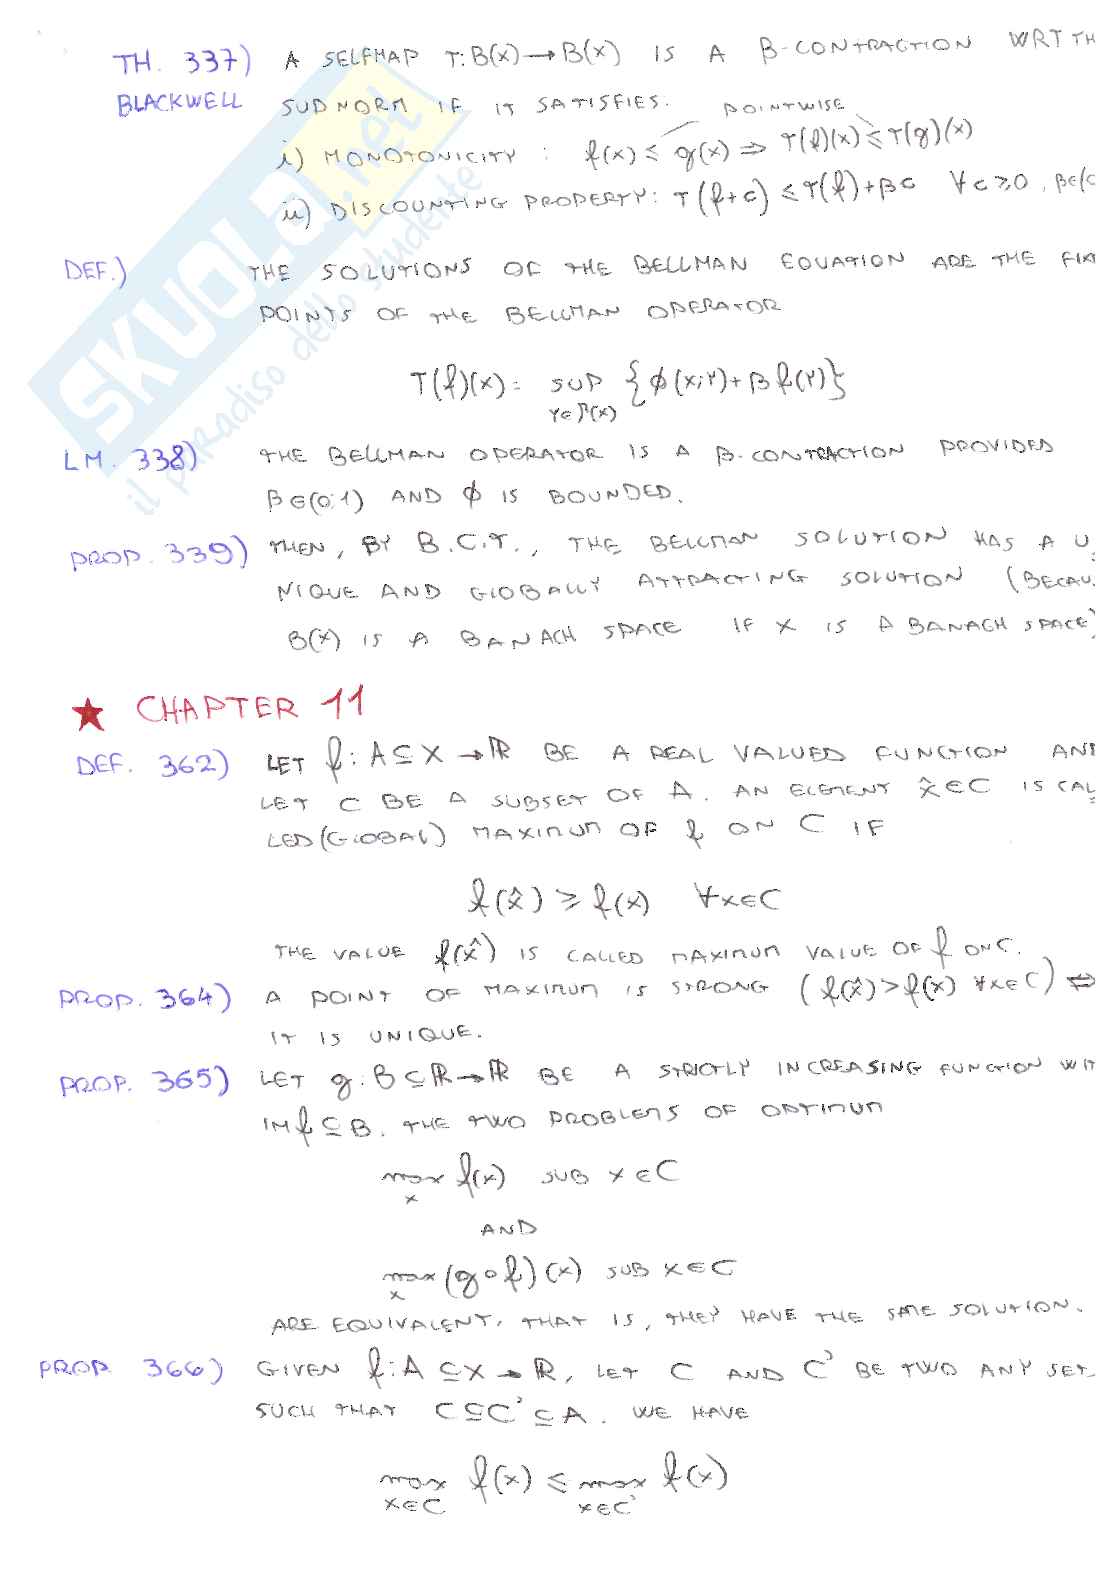 TH. 337) A SELFMAP T: B(X)→B(X) IS A β-CONTRACTION WRT TH
BLACKWELL SUPNORM IF IT SATISFIES: POINTWISE
i) MONOTONICITY : f(x) ≤ g(x) ⇒ T(f)(x) ≤ T(g)(x)
ii) DISCOUNTING PROPERTY: T(f+c) ≤ T(f)+βc ∀c≥0, β∈(0
DEF.) THE SOLUTIONS OF THE BELLMAN EQUATION ARE THE FIX
POINTS OF THE BELLMAN OPERATOR
T(f)(x) = SUP {ϕ(x,y)+βf(y)}
y∈Γ(x)
LM. 338) THE BELLMAN OPERATOR IS A β-CONTRACTION PROVIDED
β∈(0,1) AND ϕ IS BOUNDED.
PROP. 339) THEN, BY B.C.T., THE BELLMAN SOLUTION HAS A U
NIQUE AND GLOBALLY ATTRACTING SOLUTION (BECAU
B(X) IS A BANACH SPACE IF X IS A BANACH SPACE)
★ CHAPTER 11
DEF. 362) LET f: A⊆X→ℝ BE A REAL VALUED FUNCTION AND
LET C BE A SUBSET OF A. AN ELEMENT x̂∈C IS CAL
LED (GLOBAL) MAXIMUM OF f ON C IF
f(x̂) ≥ f(x) ∀x∈C
THE VALUE f(x̂) IS CALLED MAXIMUM VALUE OF f ON C.
PROP. 364) A POINT OF MAXIMUM IS STRONG (f(x̂)>f(x) ∀x∈C) ⇔
IT IS UNIQUE.
PROP. 365) LET g: B⊆ℝ→ℝ BE A STRICTLY INCREASING FUNCTION WIT
IMf⊆B. THE TWO PROBLEMS OF OPTIMUM
max f(x) SUB x∈C
x
AND
max (g∘f)(x) SUB x∈C
x
ARE EQUIVALENT, THAT IS, THEY HAVE THE SAME SOLUTION.
PROP 366) GIVEN f: A⊆X→ℝ, LET C AND C' BE TWO ANY SET
SUCH THAT C⊆C'⊆A. WE HAVE
max f(x) ≤ max f(x)
x∈C x∈C'
SKUOLA.net
il paradiso dello studente